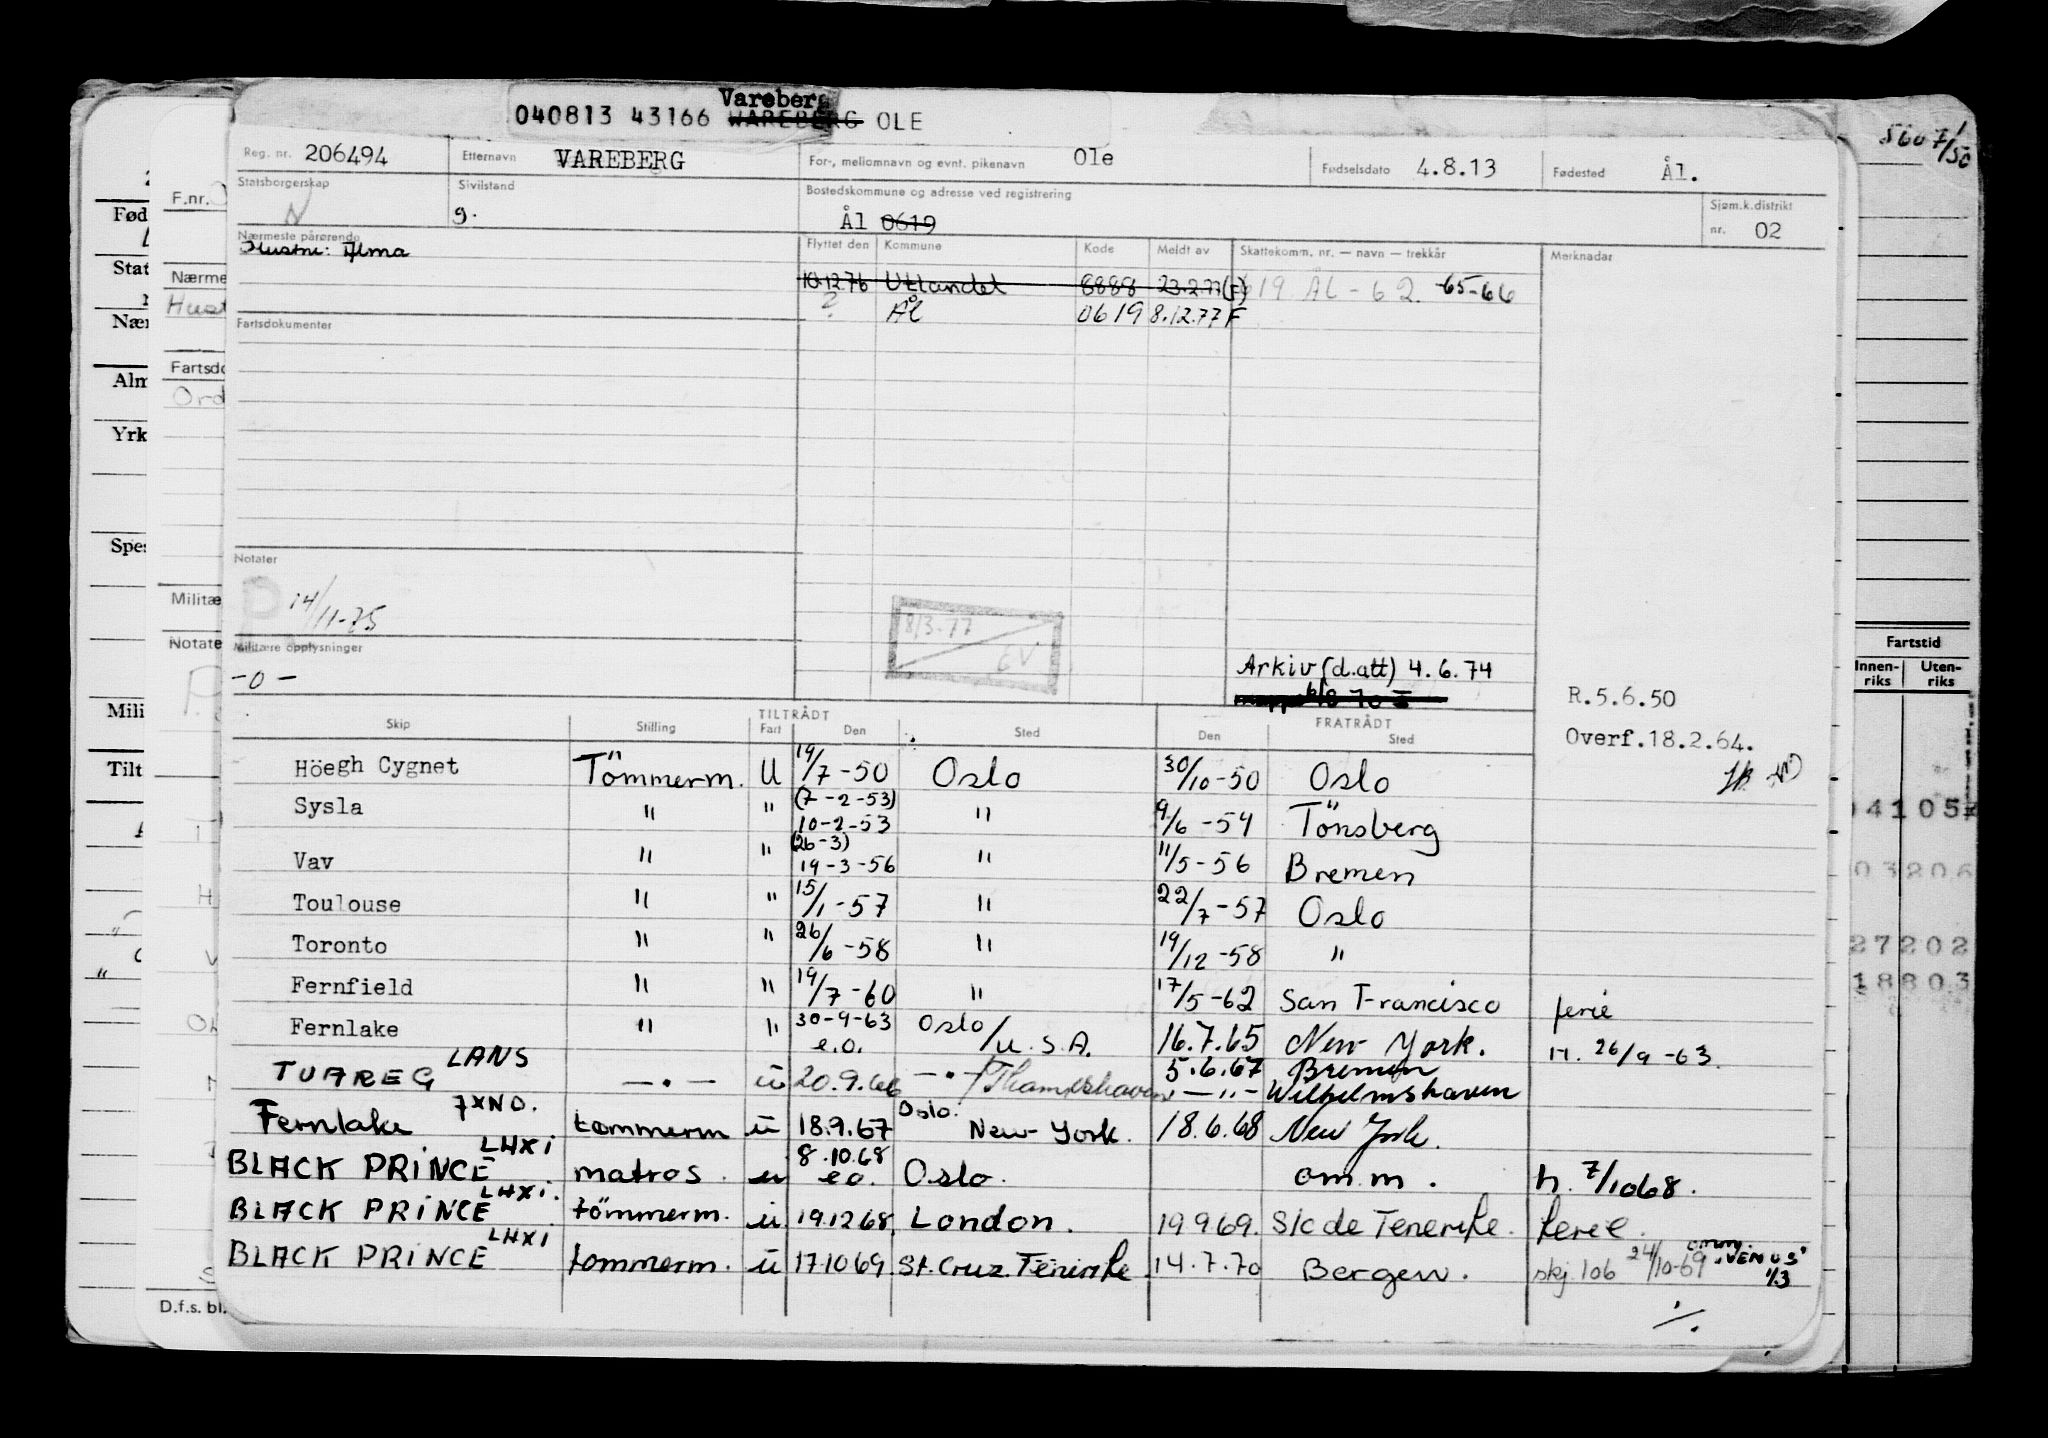 Vareberg
040813 43166 WAREBERG OLE
5607/50
Reg. nr. 206494 Etternavn VAREBERG For-, mellomnavn og evnt. pikenavn Ole Fødselsdato 4.8.13 Fødested Ål.
Statsborgerskap N Sivilstand g. Bostedskommune og adresse ved registrering Ål 0619 Sjøm.k.distrikt nr. 02
Nærmeste pårørende Hustru: Alma
Flyttet den Kommune Kode Meldt av Skattekomm. nr. — navn — trekkår Merknader
10.12.76 Utlandet 8888 23.2.77(F) 619 ÅL - 62. -65-66
? Ål 0619 8.12.77 F
Fartsdokumenter
Notater
P 14/11-75
8/3-77
GV
Militære opplysninger
-0-
Arkiv (d.att) 4.6.74
R.5.6.50
Overf.18.2.64.
TILTRÅDT FRATRÅDT
Skip Stilling Fart Den Sted Den Sted
Höegh Cygnet Tömmerm. U 19/7-50 Oslo 30/10-50 Oslo
Sysla " " (7-2-53) 10-2-53 " 9/6-54 Tönsberg
Vav " " (26-3) 19-3-56 " 11/5-56 Bremen
Toulouse " " 15/1-57 " 22/7-57 Oslo
Toronto " " 26/6-58 " 19/12-58 "
Fernfield " " 19/7-60 " 17/5-62 San Francisco ferie
Fernlake " " 30-9-63 e.o. Oslo/U.S.A. 16.7.65 New York. H. 26/9-63.
TUAREG LANS —•— u 20.9.66 —•—/Thamshavn 5.6.67 Bremen
—"— Wilhelmshaven
Fernlake JXNO. tommerm u 18.9.67 Oslo. New York. 18.6.68 New York.
BLACK PRINCE LHXI matros. u 8.10.68 e.o. Oslo. om.m. h. 7/1068.
BLACK PRINCE LHXI. tömmerm. u. 19.12.68. London. 19.9.69. S/c de Tenerife. ferie.
BLACK PRINCE LHXI tommerm. u 17.10.69. St. Cruz. Tenerife 14.7.70 Bergen. skj. 106 24/10-69 omm. "VENUS" 1/3
F.nr.
Fød
Stat
Nærme
Hust
Nær
Fartsdo
Ord
Alm
Yrk
Spes
Militæ
Notate
Mili
Tilt
D.f.s. bl.
Fartstid
Innen-riks Uten-riks
04105
03206
27202
18803